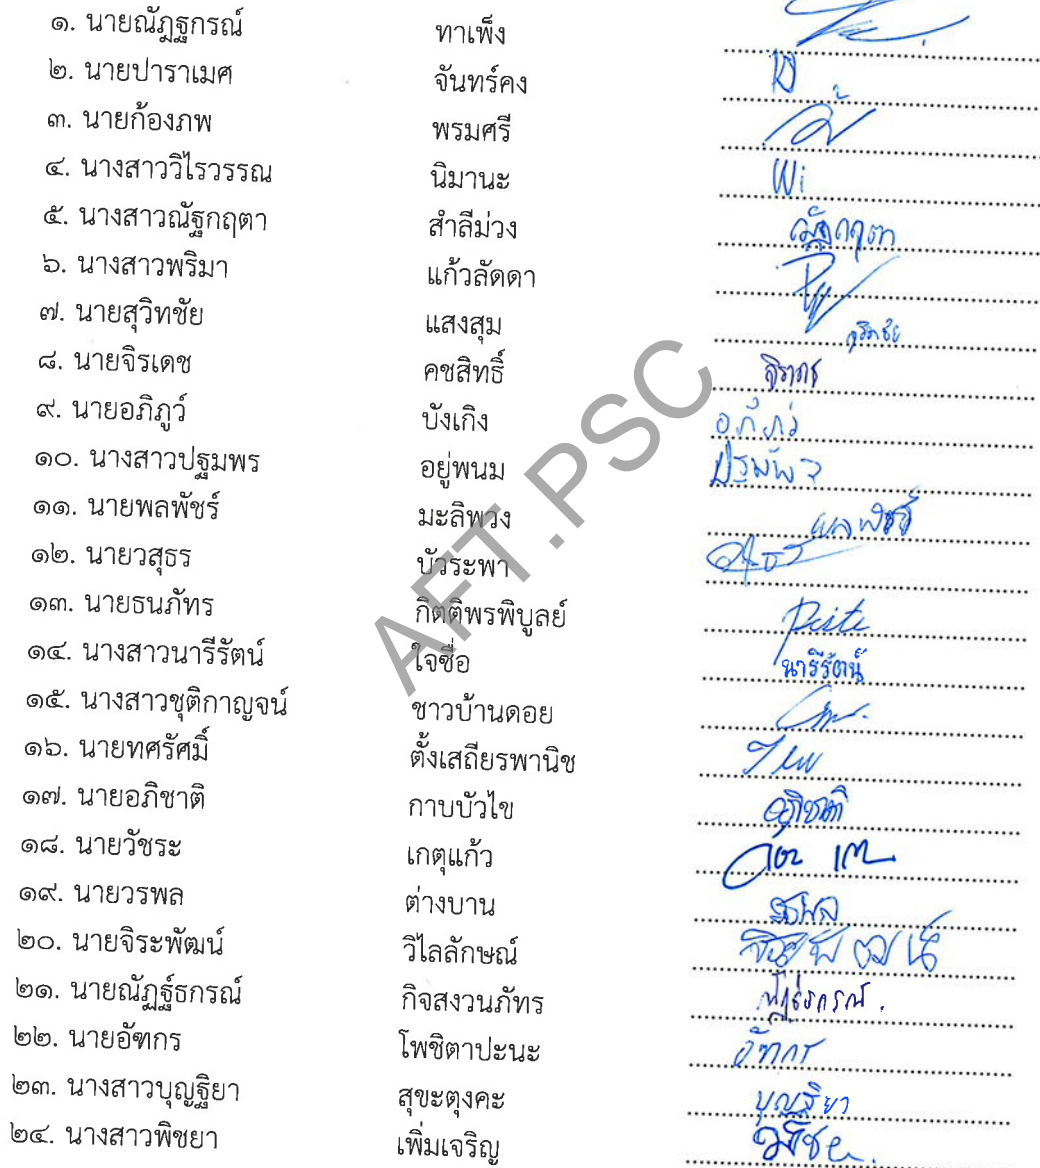 ๑. นายณัฏฐกรณ์ ทาเพ็ง
๒. นายปาราเมศ จันทร์คง
๓. นายก้องภพ พรมศรี
๔. นางสาววิไรวรรณ นิมานะ Wi
๕. นางสาวณัฐกฤตา สำลีม่วง ณัฐกฤตา
๖. นางสาวพริมา แก้วลัดดา
๗. นายสุวิทชัย แสงสุม สุวิทชัย
๘. นายจิรเดช คชสิทธิ์
๙. นายอภิภูว์ บังเกิง
๑๐. นางสาวปฐมพร อยู่พนม ปฐมพร
๑๑. นายพลพัชร์ มะลิพวง พลพัชร์
๑๒. นายวสุธร บัวระพา
๑๓. นายธนภัทร กิตติพรพิบูลย์
๑๔. นางสาวนารีรัตน์ ใจซื่อ นารีรัตน์
๑๕. นางสาวชุติกาญจน์ ชาวบ้านดอย
๑๖. นายทศรัศมิ์ ตั้งเสถียรพานิช
๑๗. นายอภิชาติ กาบบัวไข อภิชาติ
๑๘. นายวัชระ เกตุแก้ว
๑๙. นายวรพล ต่างบาน วรพล
๒๐. นายจิระพัฒน์ วิไลลักษณ์ จิระพัฒน์
๒๑. นายณัฏฐ์ธกรณ์ กิจสงวนภัทร ณัฏฐ์ธกรณ์
๒๒. นายอัฑกร โพชิตาปะนะ อัฑกร
๒๓. นางสาวบุญฐิยา สุขะตุงคะ บุญฐิยา
๒๔. นางสาวพิชยา เพิ่มเจริญ
AFT.PSC